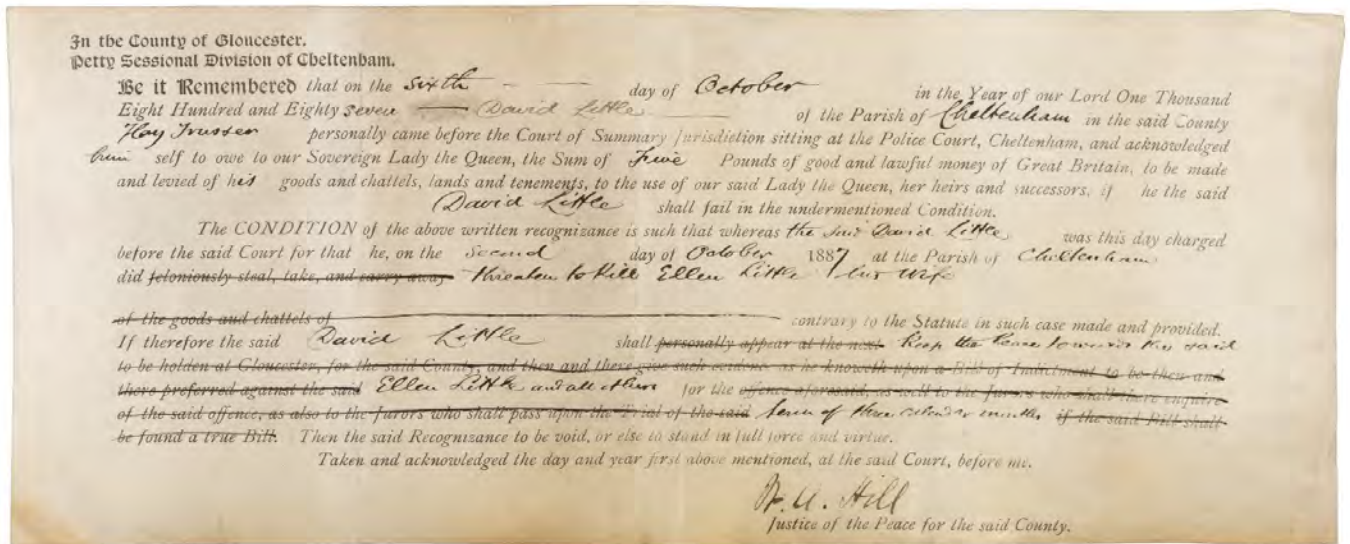 In the County of Gloucester.
Petty Sessional Division of Cheltenham.
Be it Remembered that on the sixth day of October in the Year of our Lord One Thousand
Eight Hundred and Eighty seven David Little of the Parish of Cheltenham in the said County
Hay Trusser personally came before the Court of Summary Jurisdiction sitting at the Police Court, Cheltenham, and acknowledged
him self to owe to our Sovereign Lady the Queen, the Sum of Five Pounds of good and lawful money of Great Britain, to be made
and levied of his goods and chattels, lands and tenements, to the use of our said Lady the Queen, her heirs and successors, if he the said
David Little shall fail in the undermentioned Condition.
The CONDITION of the above written recognizance is such that whereas the said David Little was this day charged
before the said Court for that he, on the second day of October 1887 at the Parish of Cheltenham
did feloniously steal, take, and carry away threaten to kill Ellen Little his wife
of the goods and chattels of contrary to the Statute in such case made and provided.
If therefore the said David Little shall personally appear at the next keep the peace towards the said
to be holden at Gloucester, for the said County, and then and there give such evidence as he knoweth upon a Bill of Indictment to be then and
there preferred against the said Ellen Little and all others for the offence aforesaid, as well to the Jurors who shall there enquire
of the said offence, as also to the Jurors who shall pass upon the Trial of the said term of three calendar months if the said Bill shall
be found a true Bill. Then the said Recognizance to be void, or else to stand in full force and virtue.
Taken and acknowledged the day and year first above mentioned, at the said Court, before me.
Hill
Justice of the Peace for the said County.